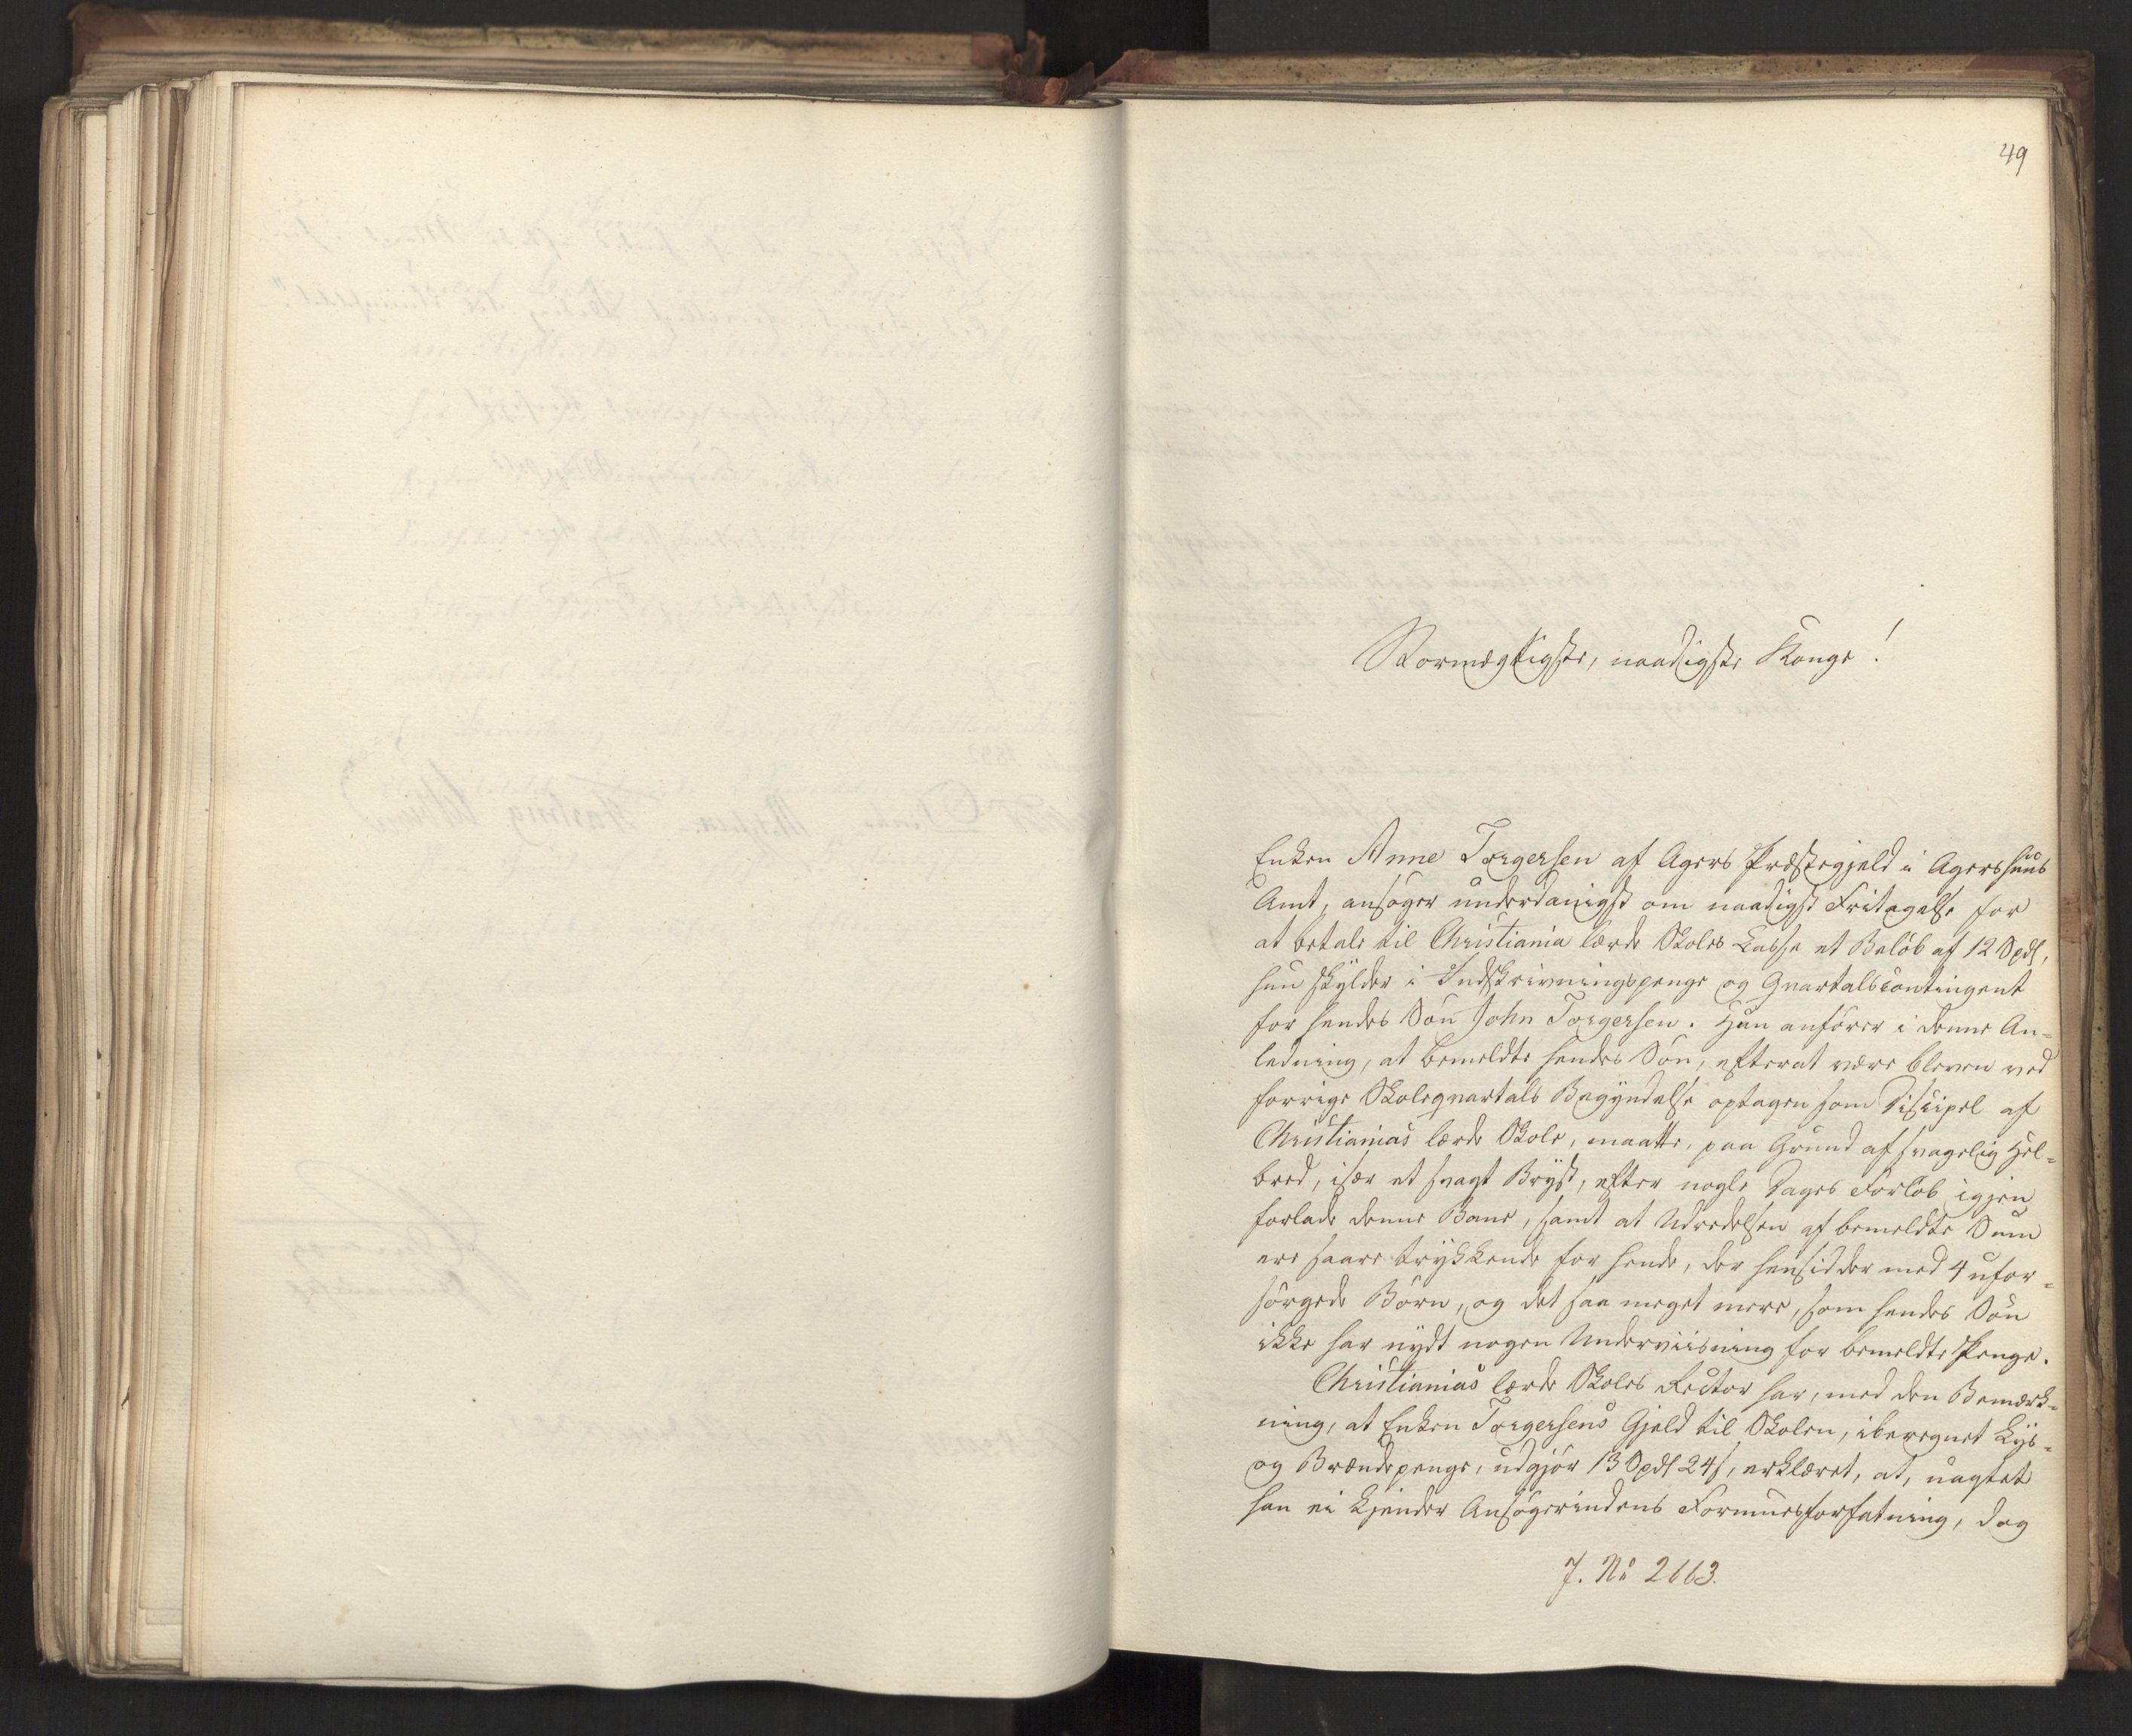 49
Stormægtigste, naadigste Konge!
Enken Anne Torgersen af Agers Præstegjeld i Agershuus
Amt, ansøger underdanigst om naadigst Fritagelse for
at betale til Christiania lærde Skoles Casse et Beløb af 12 Spdl,
hun skylder i Indskrivningspenge og Qvartalscontingent
for hendes Søn John Torgersen. Hun anfører i denne An-
ledning, at bemeldte hendes Søn, efterat være bleven ved
forrige Skoleqvartals Begyndelse optagen som Discipel af
Christianias lærde Skole, maatte, paa Grund af svagelig Hel-
bred, især et svagt Bryst, efter nogle Dages Forløb igjen
forlade denne Bane, samt at Udredelsen af bemeldte Sum
er saare trykkende for hende, der hensidder med 4 ufor-
sørgede Børn, og det saa meget mere, som hendes Søn
ikke har nydt nogen Underviisning for bemeldte Penge.
Christianias lærde Skoles Rector har, med den Bemærk-
ning, at Enken Torgersens Gjeld til Skolen, iberegnet Lys-
og Brændepenge, udgjør 13 Spdl 24 s, erklæret, at, uagtet
han ei kjender Ansøgerindens Formuesforfatning, dog
J. No 2663.